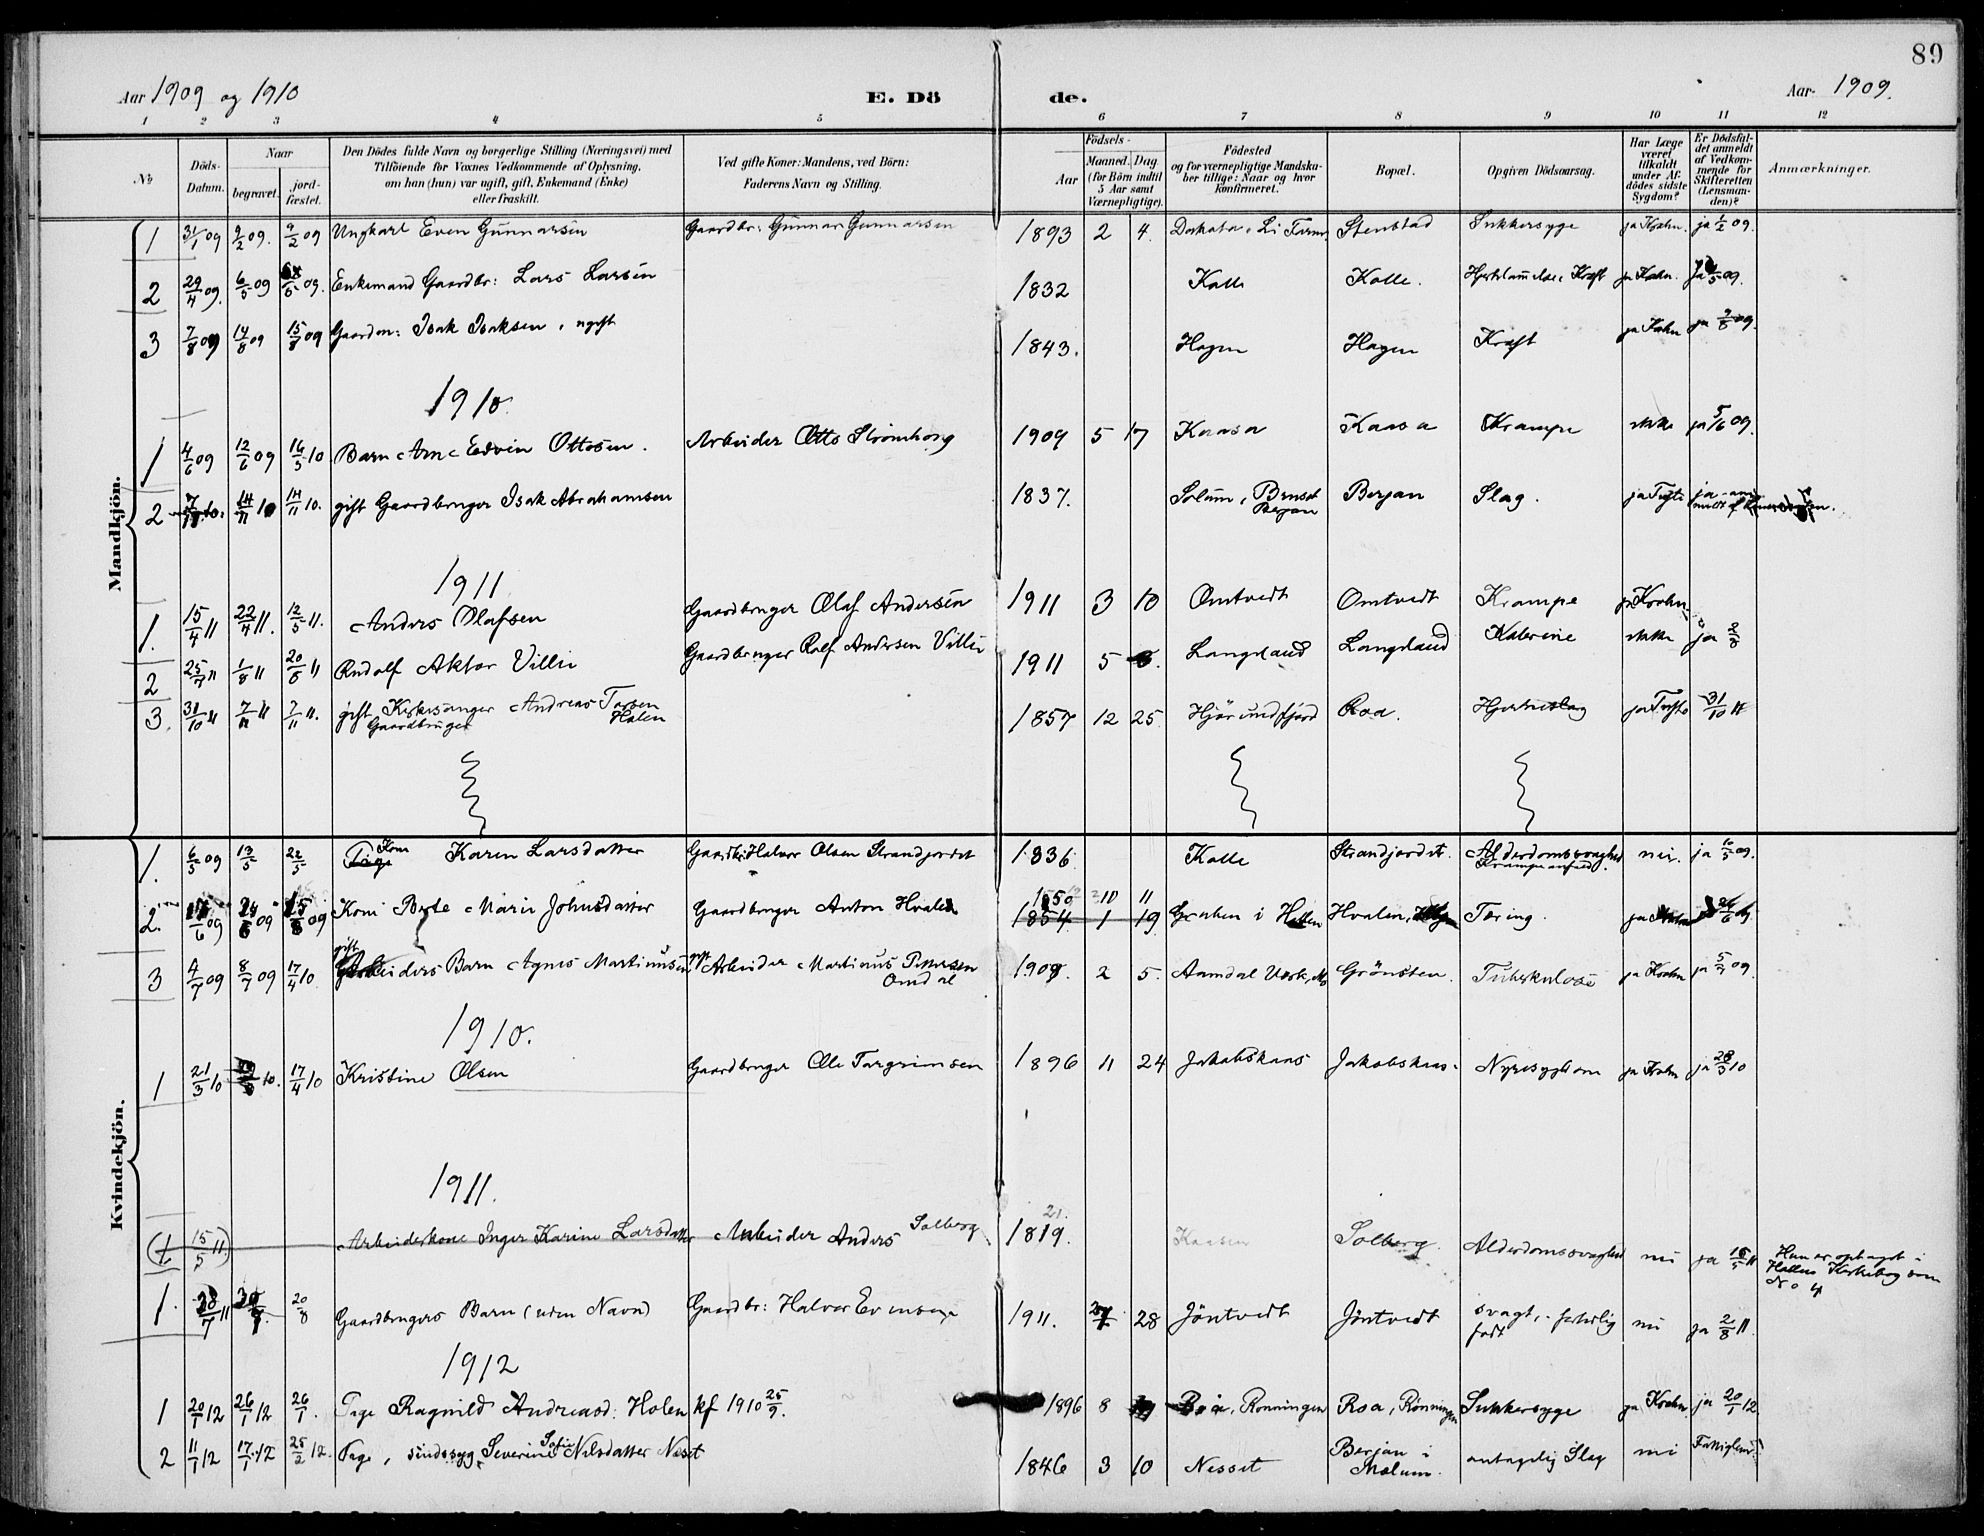 89
Aar 1909 og 1910
E. Dö
de.
Aar 1909.
1 2 3 4 5 6 7 8 9 10 11 12
№
Döds-Datum.
Naar
begravet.
jord-fæstet.
Den Dödes fulde Navn og borgerlige Stilling (Næringsvei) med
Tilföiende for Voxnes Vedkommende af Oplysning,
om han (hun) var ugift, gift, Enkemand (Enke)
eller fraskilt.
Ved gifte Koner: Mandens, ved Börn:
Faderens Navn og Stilling.
Födsels-
Aar
Maaned. Dag
(for Börn indtil
5 Aar samt
Værnepligtige).
Födested
og for værnepligtige Mandska-
ber tillige: Naar og hvor
Konfirmeret.
Bopæl.
Opgiven Dödsaarsag.
Har Læge
været
tilkaldt
under Af-
dödes sidste
Sygdom?
Er Dödsfal-
det anmeldt
af Vedkom-
mende for
Skifteretten
(Lensman-
den)?
Anmærkninger.
Mandkjön.
1 31/1 09 9/2 09. 9/2 09 Ungkarl Even Gunnarsen Gaardbr: Gunnar Gunnarsen 1893 2 4. Dakota, Li Farm Stenstad Sukkersyge ja Krohn. ja 1/2 09.
2 29/4 09. 6/5 09 Enkemand Gaardbr: Lars Larsen 1832 Kolle Kolle. Kræft ja Krohn. ja 09.
3 7/8 09 14/8 09 15/8 09 Gaardm: Isak Isaksen, ugift 1843. Hagen Hagen Kræft ja Krohn ja 9/8 09.
1910.
1 4/6 09 12/6 09 16/3 10 Barn Arne Edvin Ottosen. Arbeider Otto Strömborg 1909 5 17 Kaasa Kaasa Krampe ikke ja 5/6 09.
2 7/11 10. 14/11 10 14/11 10. gift Gaardbruger Isak Abrahamsen 1837. Solum, Berjan Berjan Slag. ja Tufte ja
1911
1. 15/4 11 22/4 11. 12/5 11. Anders Olafsen Gaardbruger Olaf Andersen 1911 3 10 Omtvedt Omtvedt Krampe ja Krohn
2 25/7 11 1/8 11 20/8 11 Rudolf Aktor Villi Gaardbruger Rolf Andersen Villi 1911 5 Langeland Langeland Kolerine ikke ja 2/8
3. 31/10 11 7/11 11 7/11 11. gift Kirkesanger Andreas Torsen
Gaardbruger Holen 1857 12 25. Hjörundfjord Roa. Hjerteslag ja Tufte 31/10 11
Kvindekjön.
1. 6/5 09 13/5 22/5 Kone Karen Larsdatter Gaardbr: Halvor Olsen Strandjordet 1836 Kolle Strandjordet. Alderdomssvaghed nei. ja 10/5 09.
2. 17/6 09 24/6 09 09 Kone Berte Marie Johnsdatter Gaardbruger Anton Hvalen 1850 10 11
1854 1 19 Graaten i Hollen Hvalen, Tæring. ja Krohn 24/6 09.
3 4/7 09 8/7 09 17/4 10 Arbeiders Barn Agnes Martinusen Arbeider Martinus Petersen
Omdal 1908. 2 5. Aamdal Værk, Mo Grönsten. Tuberkulose ja Krohn ja 5/7 09
1910.
1 21/3 10 10. 17/4 10 Kristine Olsen Gaardbruger Ole Torgrimsen 1896 11 24 Jakobskaas Jakobskaas. Nyresygdom ja Krohn ja 28/3 10
1911.
(1. 15/5 11.) Arbeiderkone Inger Karine Larsdatter Arbeider Anders Solberg 1819. 21. Kaasen Solberg. Alderdomssvaghed nei ja 16/5 11 Hun er optaget i
Hollens Kirkebog som
No 4
1. 28/7 11 30/7. 20/8 Gaardbrugers Barn (uden Navn) Gaardbr: Halvor Evensen 1911. 7 28 Jöntvedt Jöntvedt svagt, fortidlig
født nei ja 2/8 11.
1912
1 20/1 12 26/1 12 26/1. Pige Ragnild Andreasd: Holen kf 1910 25/9. 1896 8 Roa, Rönningen Roa, Rönningen Sukkersyge ja Krohn ja 20/1 12.
2 11/1 12 17/1 12 25/2 12. Pige, sindssyg Severine Sofie Nilsdatter Neset 1846 3 10 Nesset Berjan i
Melum. antagelig Slag nei Fattiglem